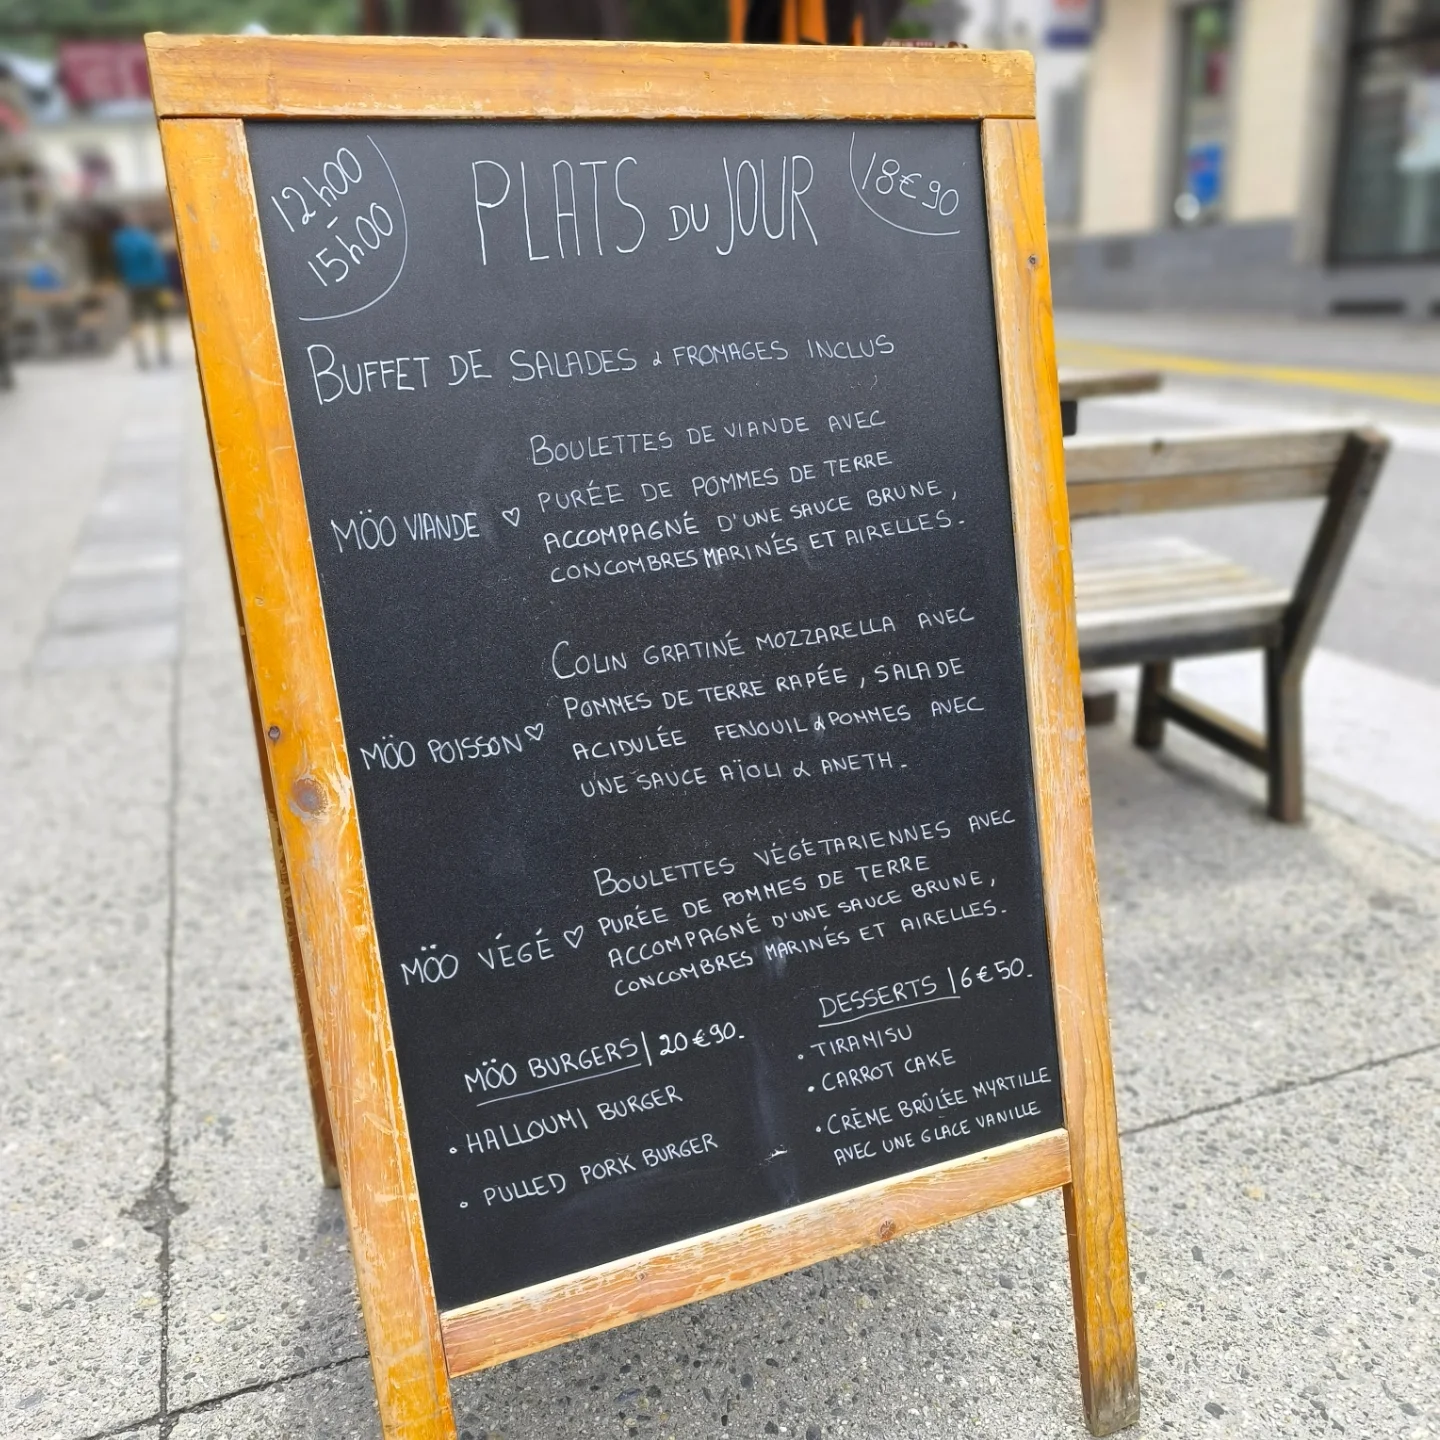 12h00
-
15h00
PLATS DU JOUR
18€90
BUFFET DE SALADES & FROMAGES INCLUS
MÖO VIANDE ♡
BOULETTES DE VIANDE AVEC
PURÉE DE POMMES DE TERRE
ACCOMPAGNÉ D'UNE SAUCE BRUNE,
CONCOMBRES MARINÉS ET AIRELLES.
MÖO POISSON ♡
COLIN GRATINÉ MOZZARELLA AVEC
POMMES DE TERRE RAPÉE, SALADE
ACIDULÉE FENOUIL & POMMES AVEC
UNE SAUCE AÏOLI & ANETH.
MÖO VÉGÉ ♡
BOULETTES VÉGÉTARIENNES AVEC
PURÉE DE POMMES DE TERRE
ACCOMPAGNÉ D'UNE SAUCE BRUNE,
CONCOMBRES MARINÉS ET AIRELLES.
MÖO BURGERS | 20€90.
• HALLOUMI BURGER
• PULLED PORK BURGER
DESSERTS | 6€50.
• TIRAMISU
• CARROT CAKE
• CRÈME BRÛLÉE MYRTILLE
AVEC UNE GLACE VANILLE